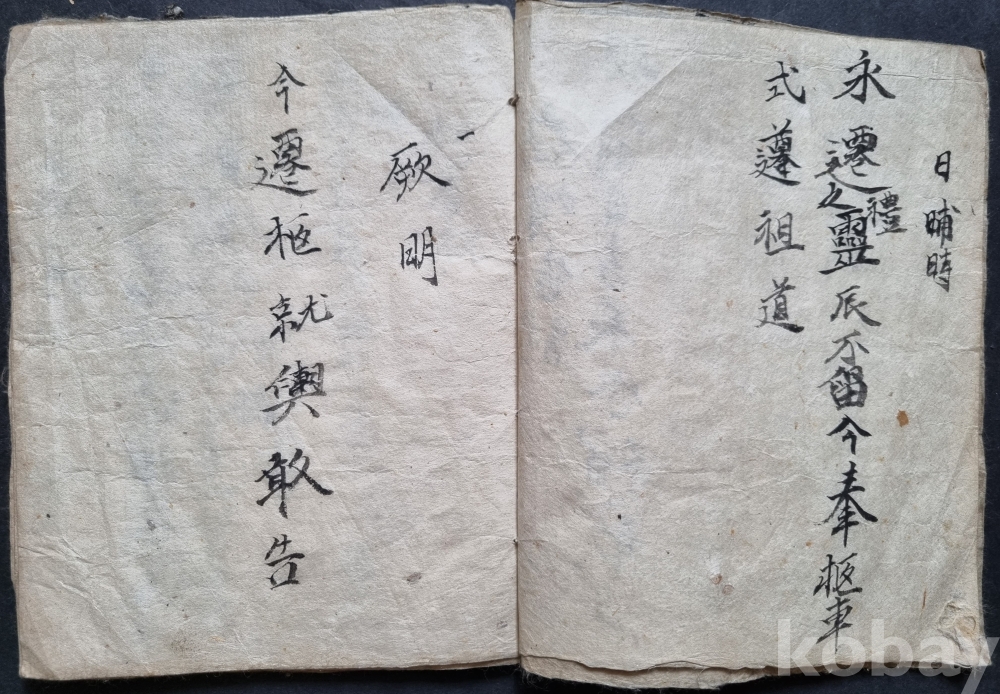 日晡時
永遷之禮靈辰不留今奉柩車
式遵祖道
厥明
今遷柩就輿敢告
kobay